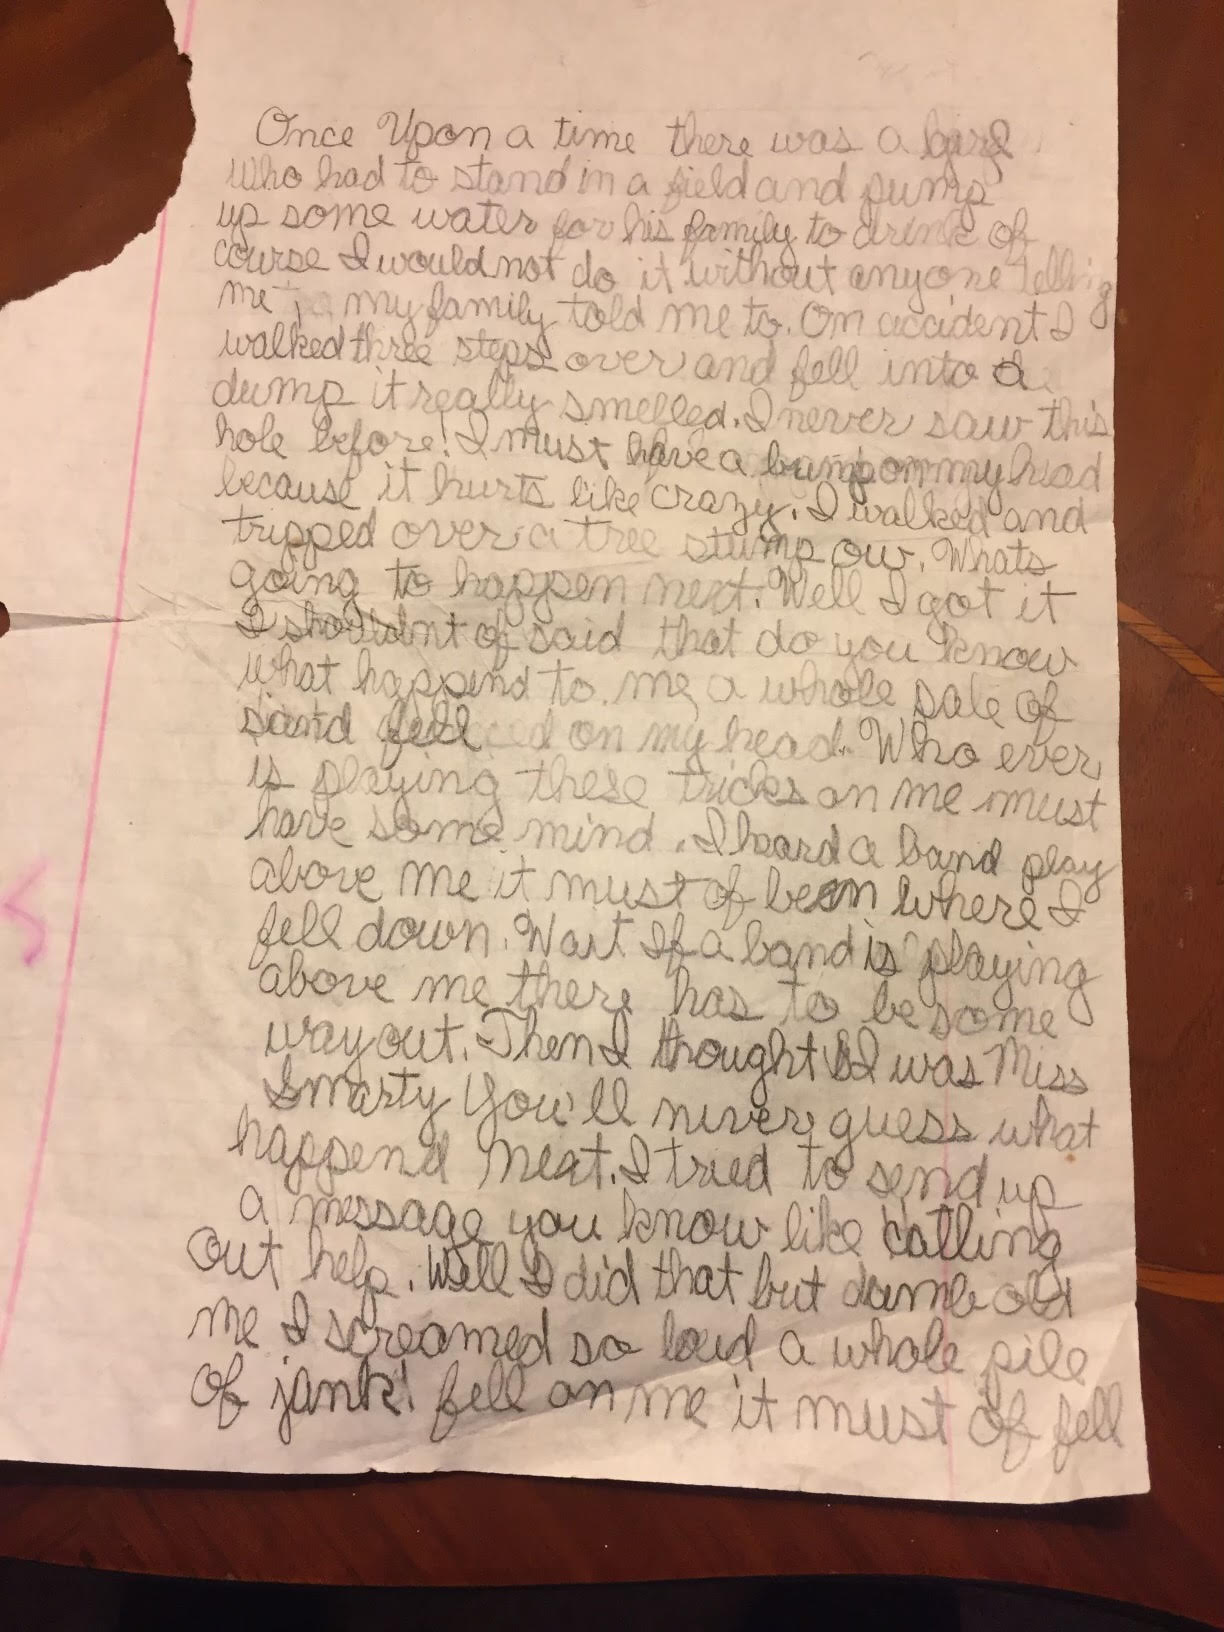 Once Upon a time there was a girl
who had to stand in a field and pump
up some water for his family to drink of
course I would not do it without anyone telling
me, my family told me to. On accident I
walked three steps over and fell into a
dump it really smelled. I never saw this
hole before! I must have a bump on my head
because it hurts like crazy. I walked and
tripped over a tree stump ow. Whats
going to happen next. Well I got it
I shouldnt of said that do you know
what happend to me a whole sale of
sand fell on my head. Who ever
is playing these tricks on me must
have some mind. I heard a band play
above me it must of been where I
fell down. Wait If a band is playing
above me there has to be some
way out. Then I thought I was Miss
Smarty You'll never guess what
happend next. I tried to send up
a message you know like calling
out help. Well I did that but dumb old
me I screamed so loud a whole pile
of junk! fell on me it must of fell